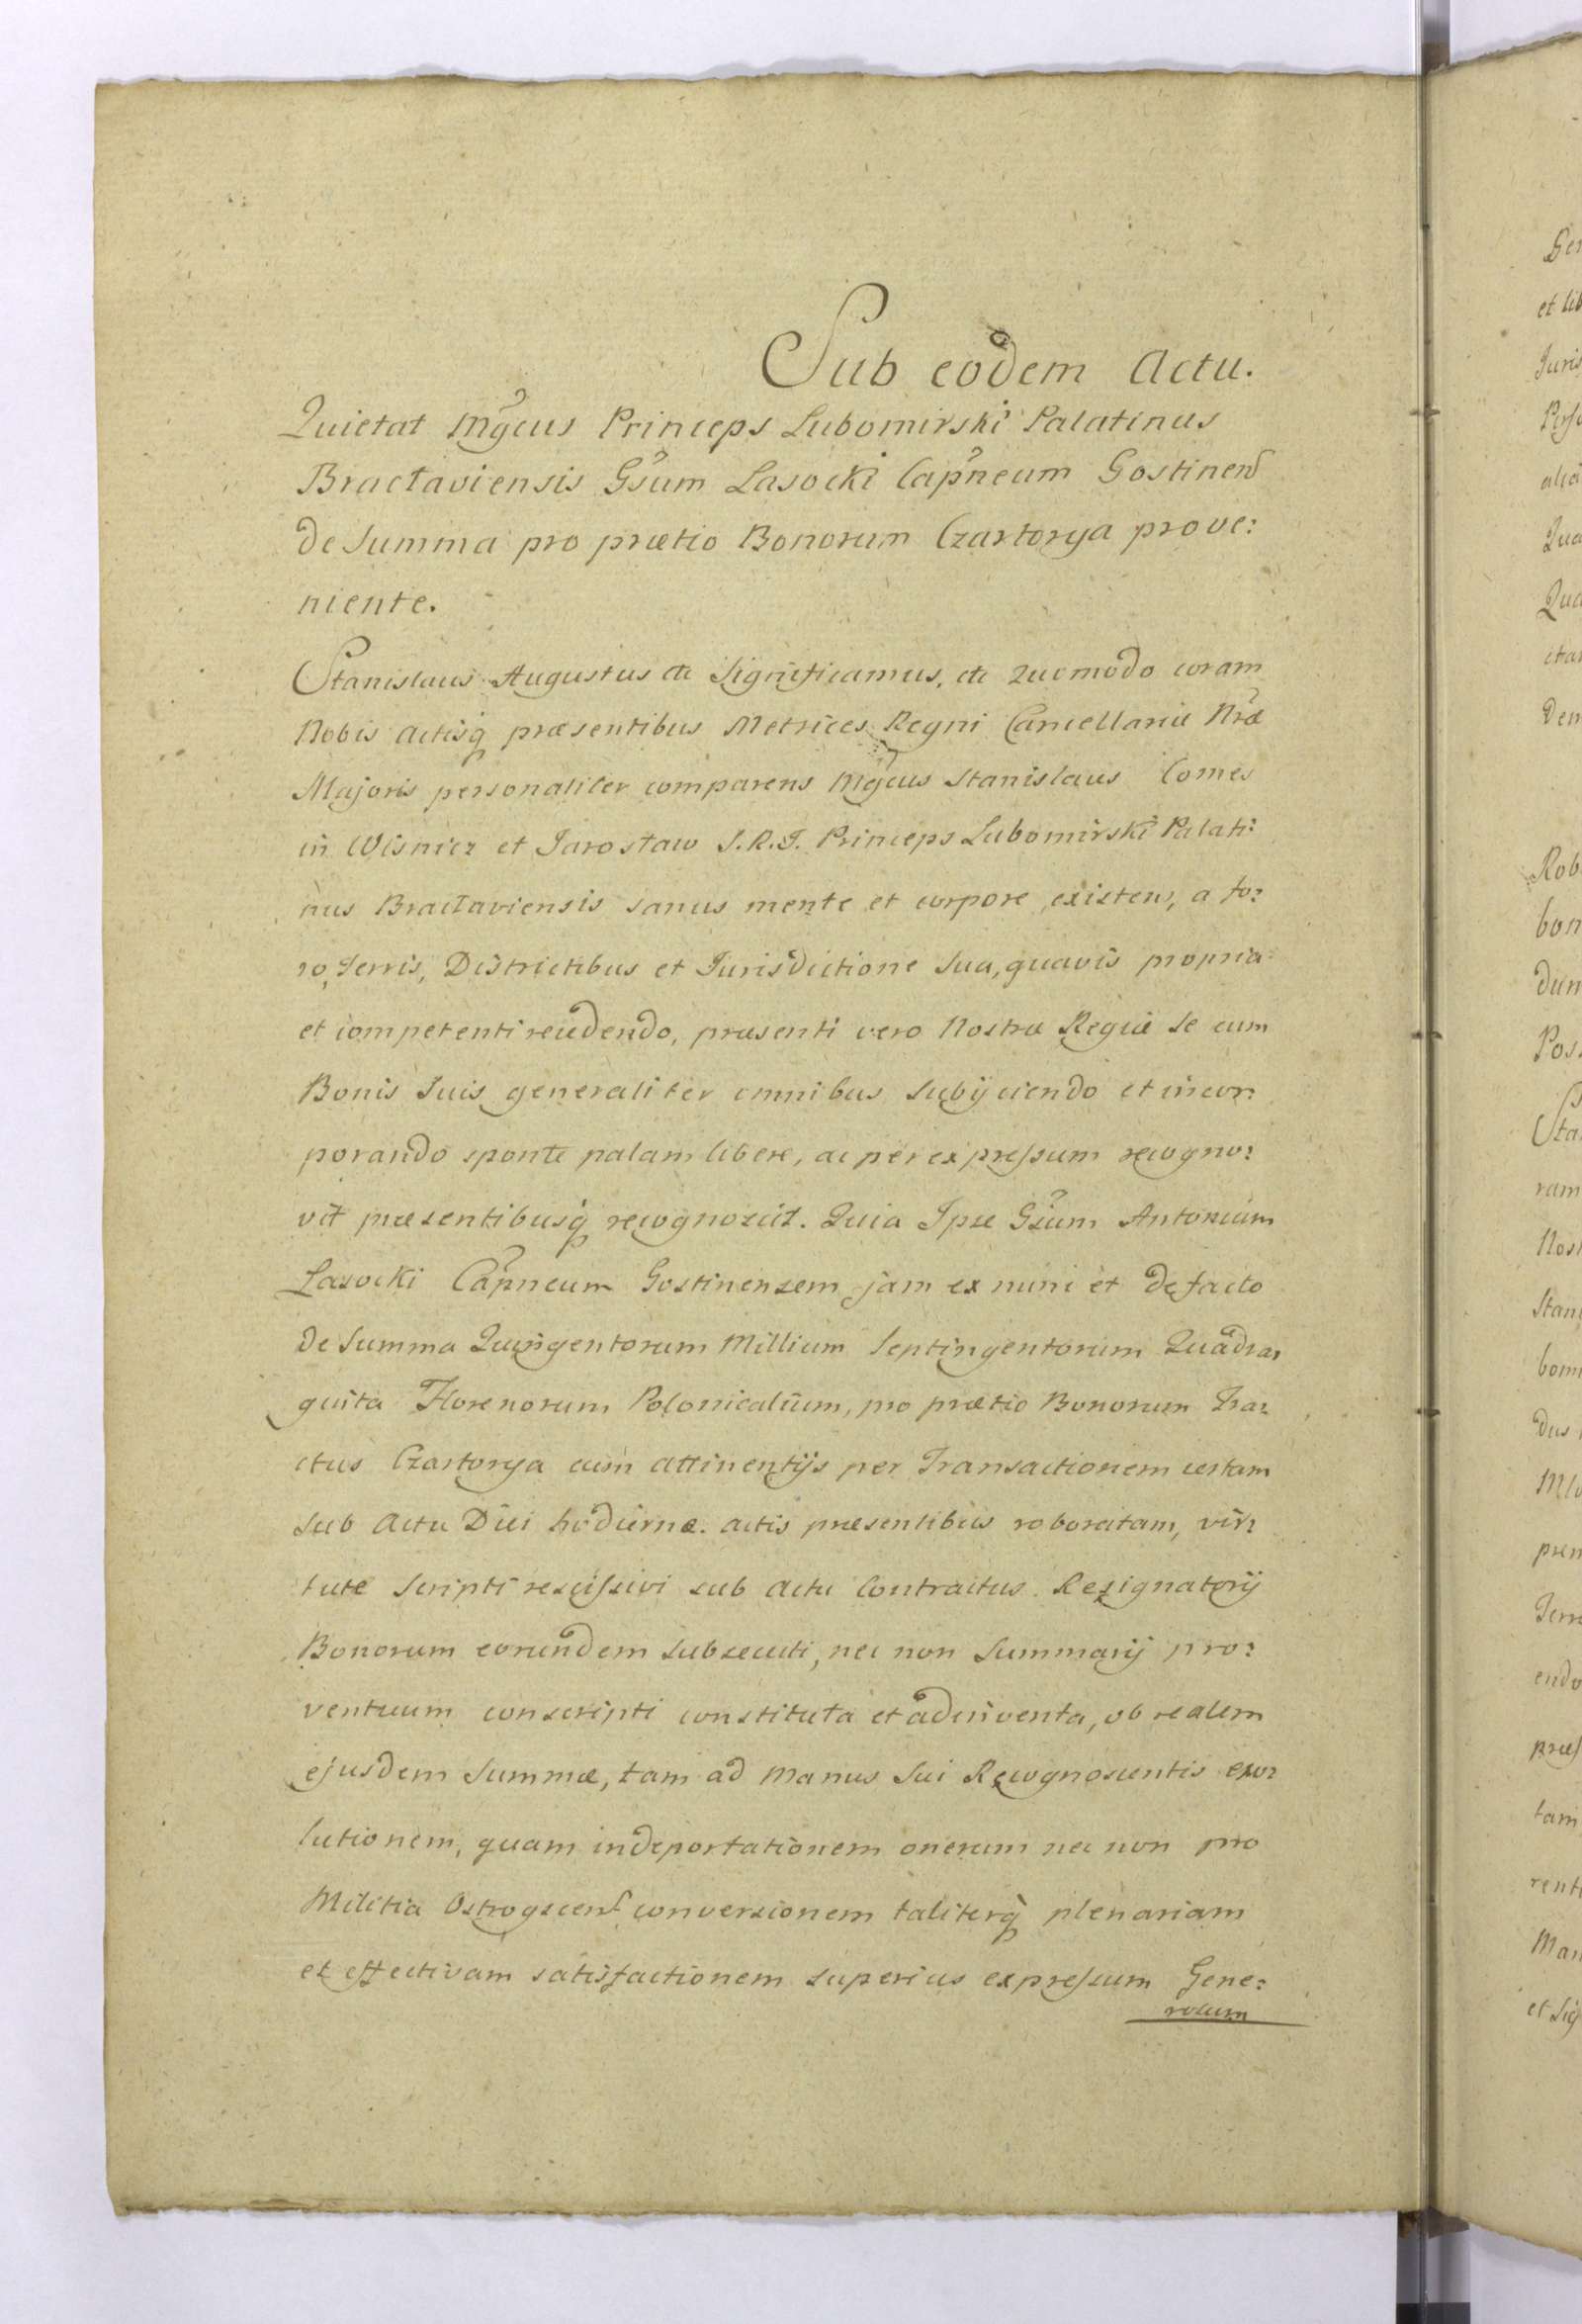 Sub eodem Actu.
Quietat Mgcus Princeps Lubomirski Palatinus
Braclaviensis Gsum Lasocki Capneum Gostinens
de Summa pro prætio Bonorum Czartorya prove:
niente.
Stanislaus Augustus etc Significamus, etc Quomodo coram
Nobis Actisq præsentibus Metrices Regni Cancellariæ Nræ
Majoris personaliter comparens Mgcus Stanislaus Comes
in Wisnicz et Jarosław S.R.I. Princeps Lubomirski Palati:
nus Braclaviensis sanus mente et corpore existens, a fo:
ro, Terris, Districtibus et Jurisdictione Sua, quavis propria
et competenti recedendo, præsenti vero Nostræ Regiæ se cum
Bonis Suis generaliter omnibus Subijciendo et incor:
porando sponte palam libere, ac per expressum recogno:
vit præsentibusq recognoscit. Quia Ipse Gsum Antonium
Lasocki Capneum Gostinensem jam ex nunc et de facto
de Summa Quingentorum Millium Septingentorum Quadra:
ginta Florenorum Polonicalium, pro prætio Bonorum Tra:
ctus Czartorya cum attinentijs per Transactionem certam
sub Actu Diei hodiernæ Actis præsentibus roboratam, vir:
tute Scripti rescissivi sub Actu Contractus Resignatorij
Bonorum eorundem subsecuti, nec non Summarij pro:
ventuum conscripti constituta et adinventa, ob realem
ejusdem Summæ, tam ad Manus Sui Recognoscentis exo:
lutionem, quam indeportationem onerum nec non pro
Militia Ostrogscens conversionem taliterq plenariam
et effectivam satisfactionem superius expressum Gene:
rosum